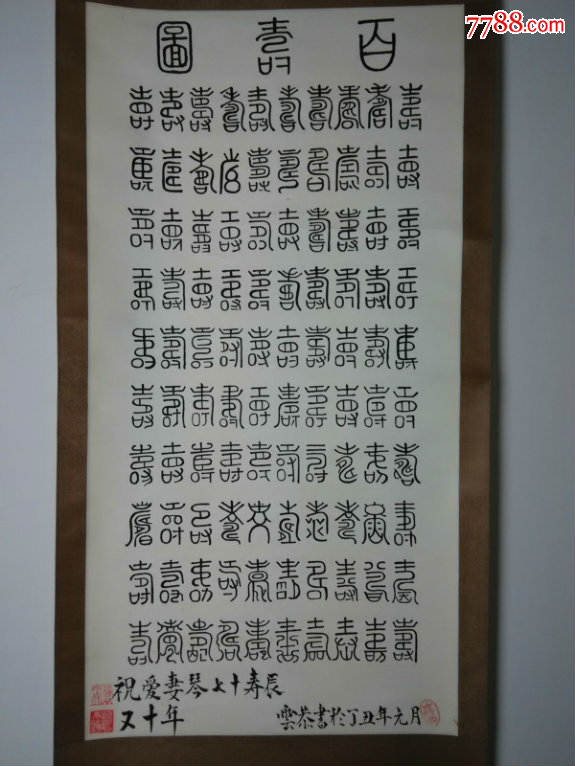 百壽圖
壽壽壽壽壽壽壽壽壽壽
壽壽壽壽壽壽壽壽壽壽
壽壽壽壽壽壽壽壽壽壽
壽壽壽壽壽壽壽壽壽壽
壽壽壽壽壽壽壽壽壽壽
壽壽壽壽壽壽壽壽壽壽
壽壽壽壽壽壽壽壽壽壽
壽壽壽壽壽壽壽壽壽壽
壽壽壽壽壽壽壽壽壽壽
壽壽壽壽壽壽壽壽壽壽
祝愛妻琴七十寿辰
又十年 雲恭書於丁丑年元月
7788.com